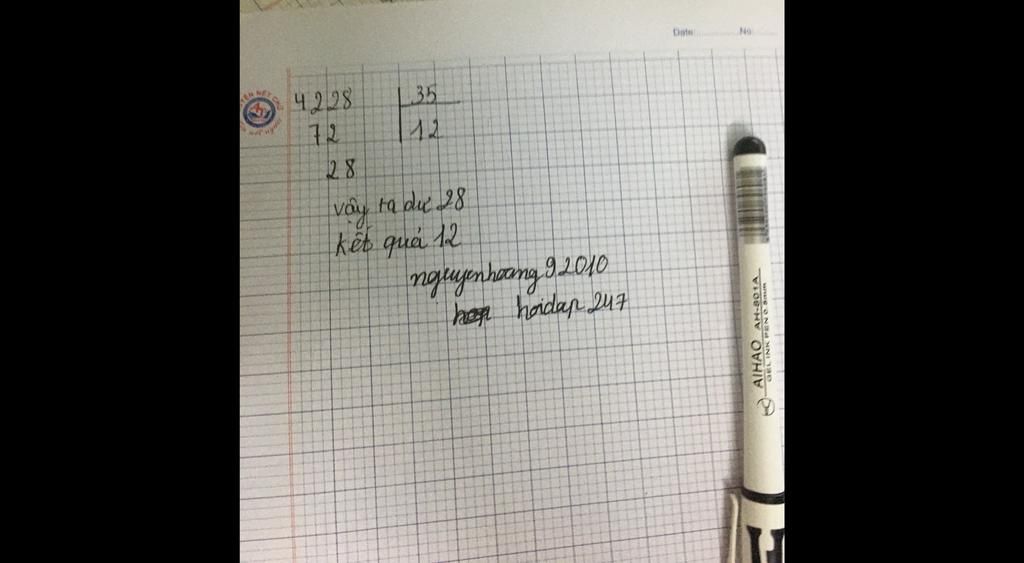 Date: No:
4228 35
72 12
28
vậy ra dư 28
kết quả 12
nguyenhoang92010
hoidap 247
AIHAO AH-801A
GEL INK PEN 0.5mm